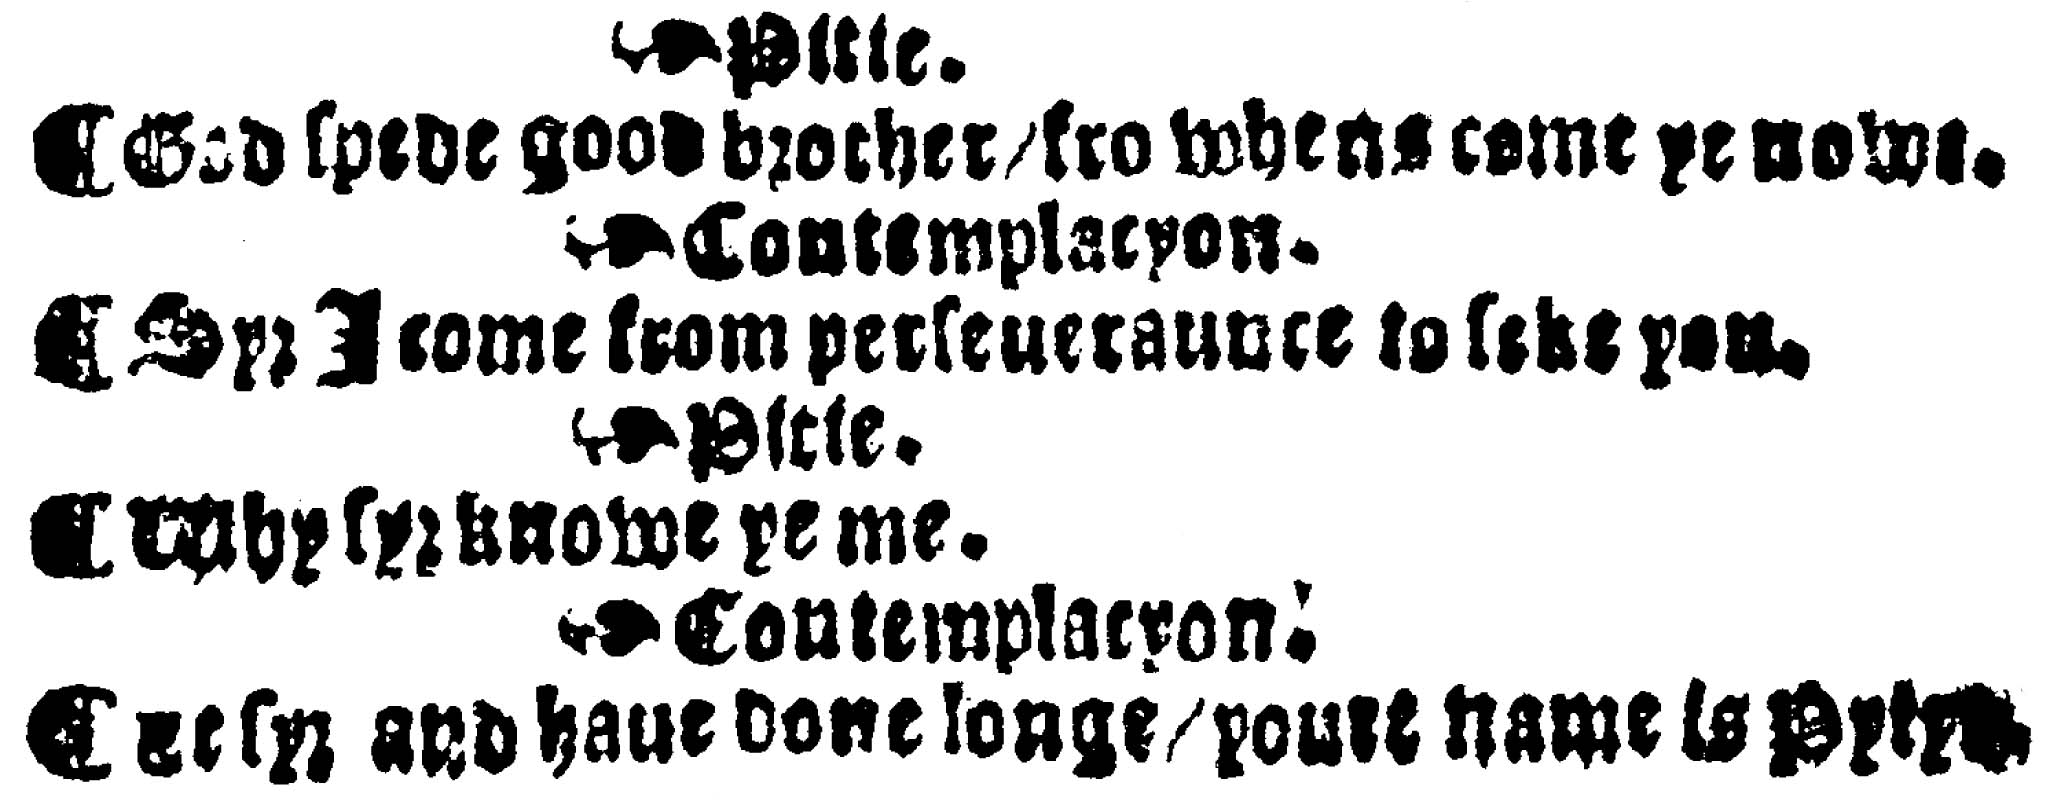 ❧Pitie.
¶ God ſpede good brother/fro whens come ye nowe.
❧Contemplacyon.
¶ Syr I come from perſeueraunce to ſeke you.
❧Pitie.
¶ Why ſyr knowe ye me.
❧Contemplacyon.
¶ Ye ſyr and haue done longe/youre name is Pytye.